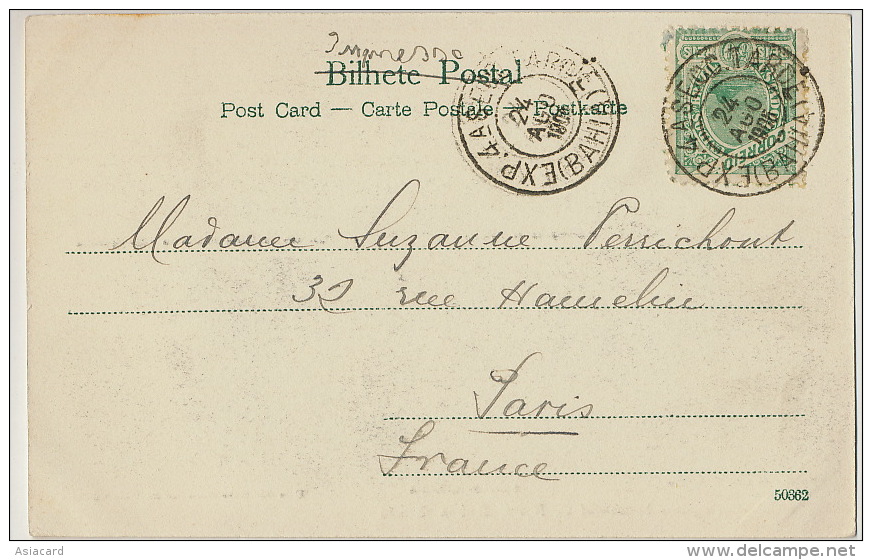 Impresso
Bilhete Postal
Post Card — Carte Postale — Postkarte
EXP. 4ª SECÇ TARDE (BAHIA)
24 AGO 1906
CORREIO
Madame Suzanne Perrichont
32 rue Hamelin
Paris
France
50362
Asiacard
www.delcampe.net